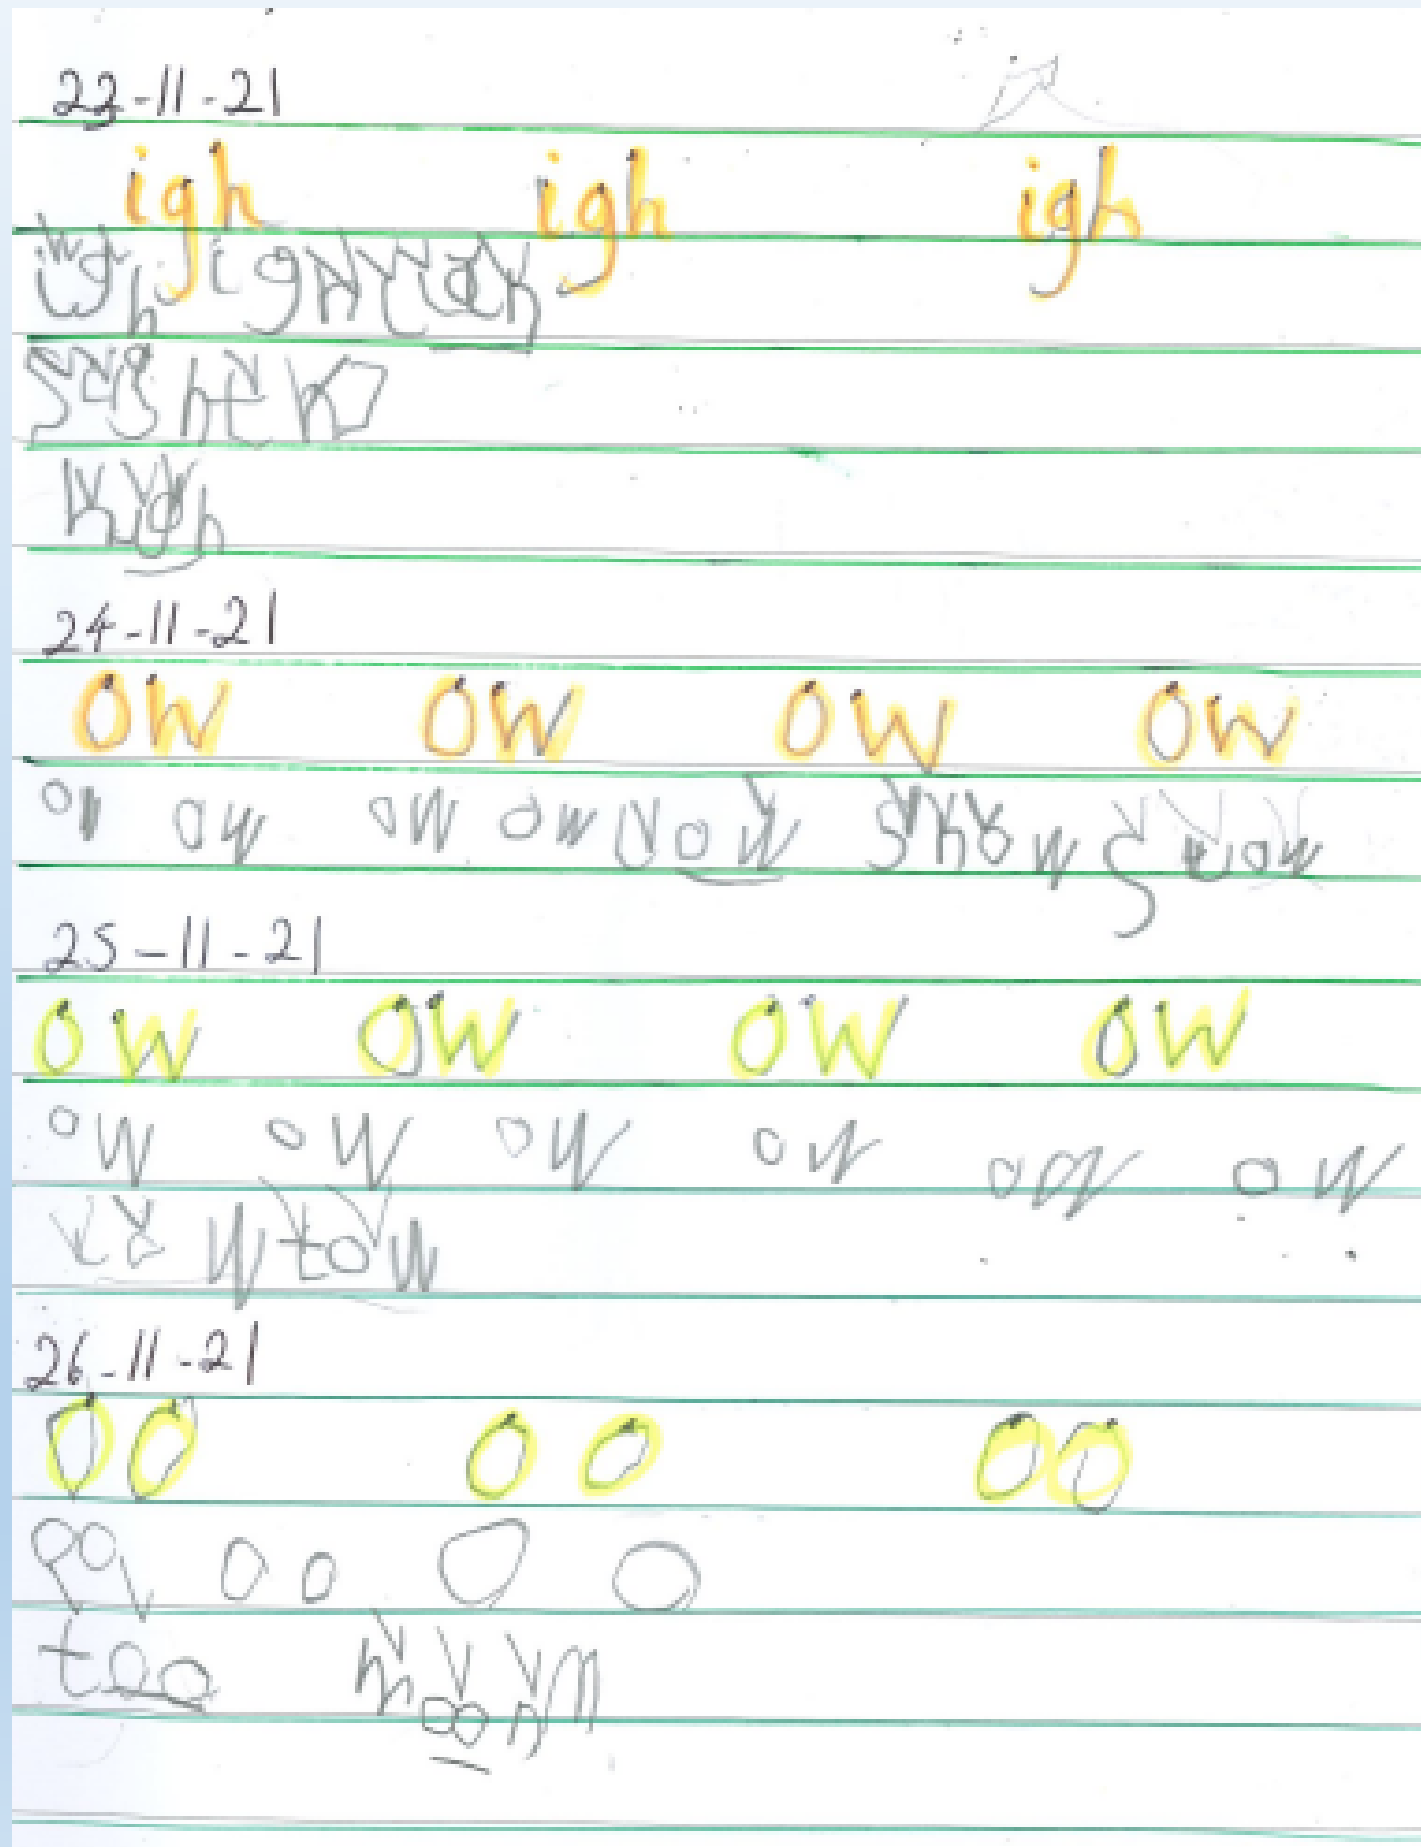 23-11-21
igh igh igh
igh igh
high
24-11-21
ow ow ow ow
ow ow ow ow Now show
25-11-21
ow ow ow ow
ow ow ow ow ow ow
tow
26-11-21
oo oo oo
oo oo o o
too moon